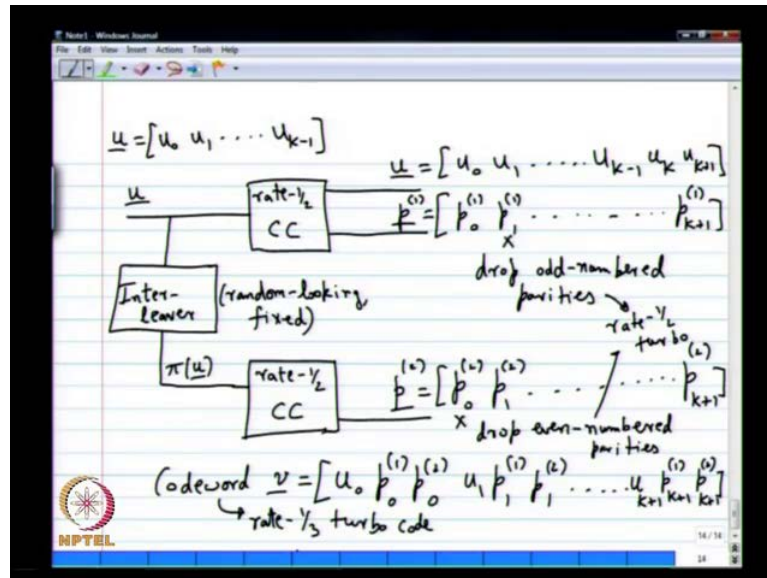 Note1 - Windows Journal
File Edit View Insert Actions Tools Help
u = [u₀ u₁ ···· u_{k-1}]
u = [u₀ u₁ ····· u_{k-1} u_k u_{k+1}]
u
rate-1/2
CC
p^{(1)} = [p₀^{(1)} p₁^{(1)} ······· p_{k+1}^{(1)}]
x
drop odd-numbered
parities
rate-1/2
turbo
Inter-
leaver
(random-looking,
fixed)
π(u)
rate-1/2
CC
p^{(2)} = [p₀^{(2)} p₁^{(2)} ········ p_{k+1}^{(2)}]
x
drop even-numbered
parities
Codeword v = [u₀ p₀^{(1)} p₀^{(2)} u₁ p₁^{(1)} p₁^{(2)} ······ u_{k+1} p_{k+1}^{(1)} p_{k+1}^{(2)}]
rate-1/3 turbo code
NPTEL
14 / 14
14